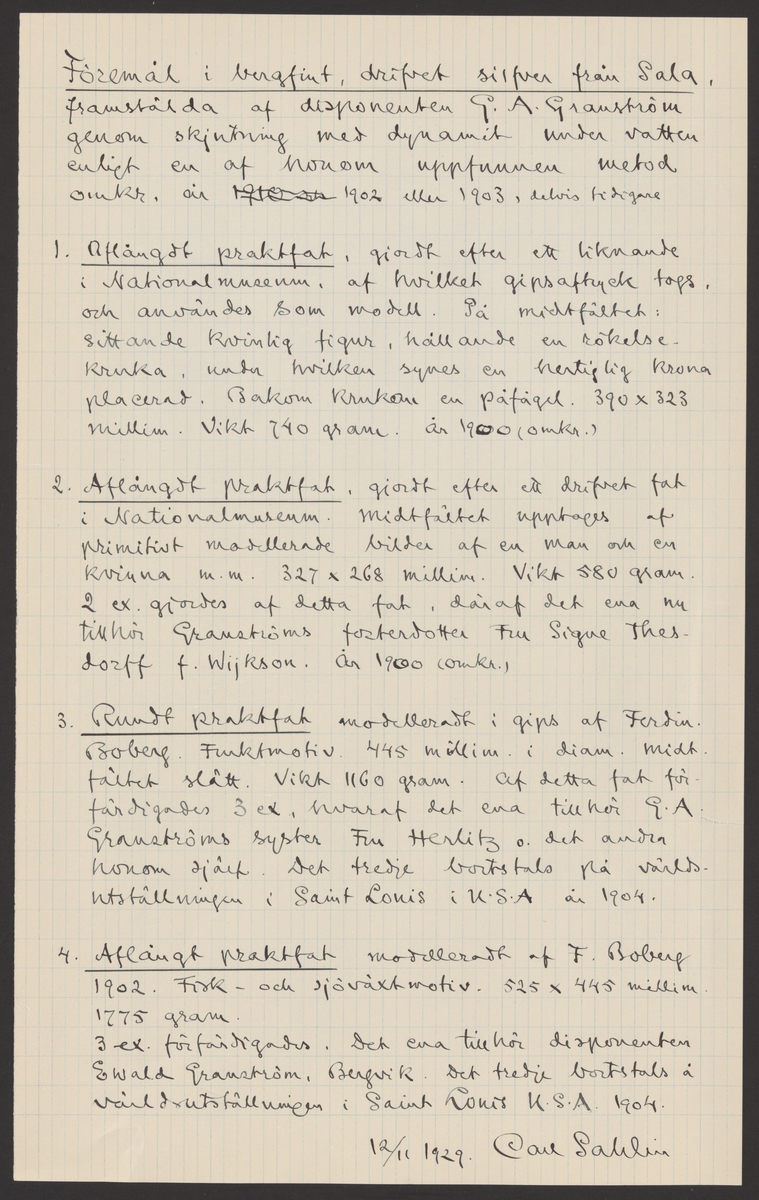 Föremål i bergfint, drifvet silfver från Sala,
framstälda af disponenten G. A. Granström
genom skjutning med dynamit under vatten
enligt en af honom uppfunnen metod
omkr. år 1902 eller 1903, delvis tidigare
1. Aflångdt praktfat, gjordt efter ett liknande
i Nationalmuseum, af hvilket gipsaftryck togs,
och användes som modell. På midtfältet:
sittande kvinlig figur, hållande en rökelse-
kruka, under hvilken synes en hertiglig krona
placerad. Bakom krukan en påfågel. 390 x 323
millim. Vikt 740 gram. År 1900 (omkr.)
2. Aflångdt praktfat, gjordt efter ett drifvet fat
i Nationalmuseum. Midtfältet upptages af
primitivt modellerade bilder af en man och en
kvinna m.m. 327 x 268 millim. Vikt 580 gram.
2 ex. gjordes af detta fat, däraf det ena nu
tillhör Granströms fosterdotter Fru Signe Thes-
dorff f. Wijkson. År 1900 (omkr.)
3. Rundt praktfat modelleradt i gips af Ferdin.
Boberg. Fruktmotiv. 445 millim. i diam. Midt-
fältet slätt. Vikt 1160 gram. Af detta fat för-
färdigades 3 ex, hvaraf det ena tillhör G. A.
Granströms syster Fru Herlitz o. det andra
honom själf. Det tredje bortstals på världs-
utställningen i Saint Louis i U.S.A år 1904.
4. Aflångt praktfat modelleradt af F. Boberg
1902. Fisk- och sjöväxtmotiv. 525 x 445 millim.
1775 gram.
3 ex. förfärdigades. Det ena tillhör disponenten
Ewald Granström, Bergvik. Det tredje bortstals å
världsutställningen i Saint Louis U.S.A. 1904.
12/11 1929. Carl Sahlin